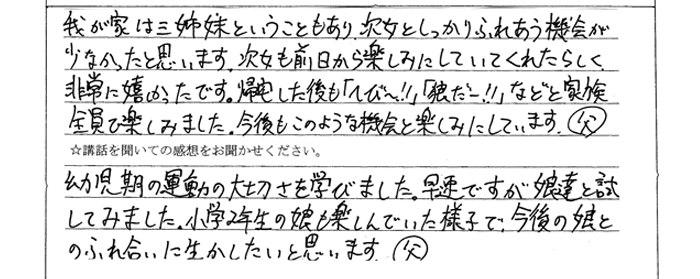 我が家は三姉妹ということもあり、次女としっかりふれあう機会が
少なかったと思います。次女も前日から楽しみにしていてくれたらしく、
非常に嬉しかったです。帰宅した後も「へび～!!」「狼だー!!」などと家族
全員で楽しみました。今後もこのような機会を楽しみにしています。(父)
☆講話を聞いての感想をお聞かせください。
幼児期の運動の大切さを学びました。早速ですが娘達と試
してみました。小学2年生の娘も楽しんでいた様子で、今後の娘と
のふれ合いに生かしたいと思います。(父)